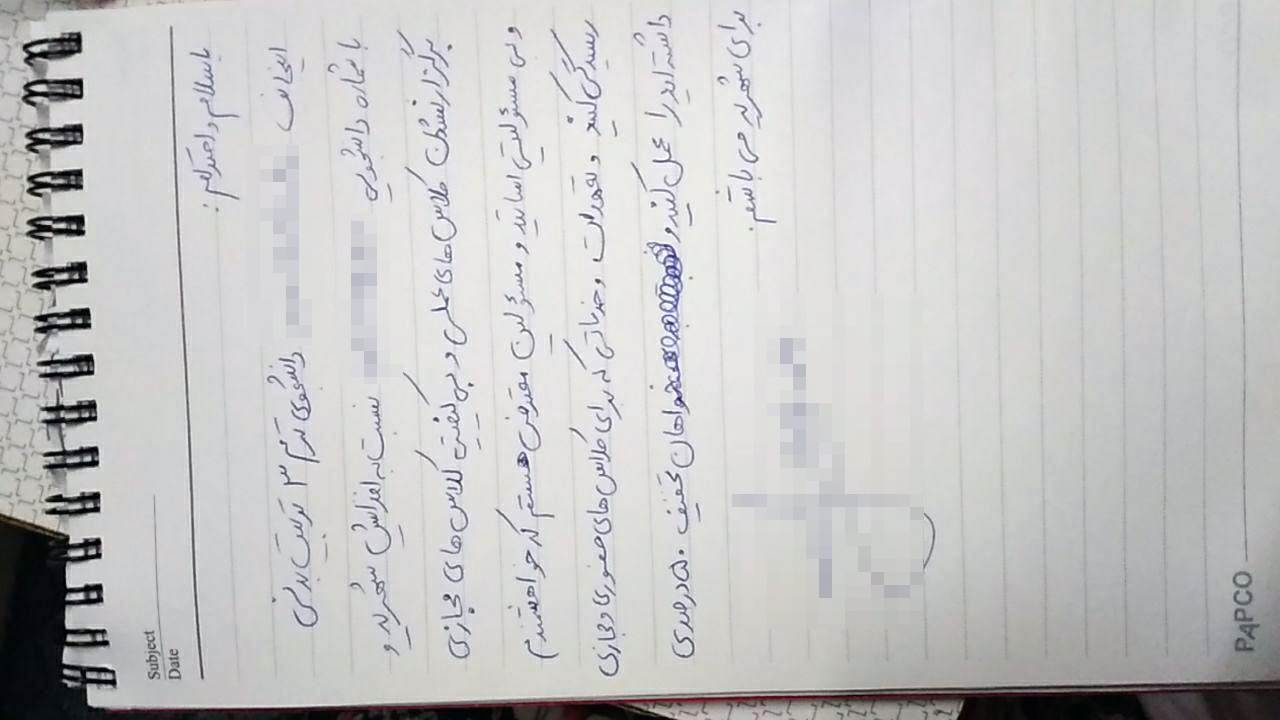 Subject
Date
باسلام و احترام:
اینجانب دانشجوی ترم ۳ تربیت بدنی
با شماره دانشجویی نسبت به افزایش شهریه و
برگزار نشدن کلاس های عملی و بی کیفیت کلاس های مجازی
و بی مسئولیتی اساتید و مسئولین معترض هستم که خواهشمندم
رسیدگی کنید و تعهدات و خدماتی که برای کلاس های حضوری و مجازی
داشته اید را عمل کنید و خواهان تخفیف ۵۰ درصدی
برای شهریه می باشم.
PAPCO